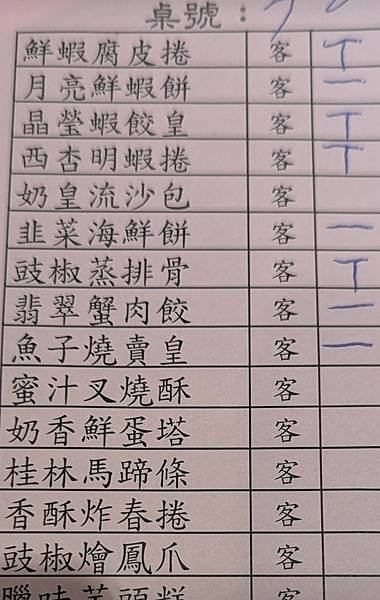 桌號：
鮮蝦腐皮捲 客 丅
月亮鮮蝦餅 客 一
晶瑩蝦餃皇 客 丅
西杏明蝦捲 客 丅
奶皇流沙包 客
韭菜海鮮餅 客 一
豉椒蒸排骨 客 丅
翡翠蟹肉餃 客 一
魚子燒賣皇 客 一
蜜汁叉燒酥 客
奶香鮮蛋塔 客
桂林馬蹄條 客
香酥炸春捲 客
豉椒燴鳳爪 客
臘味芋頭糕 客